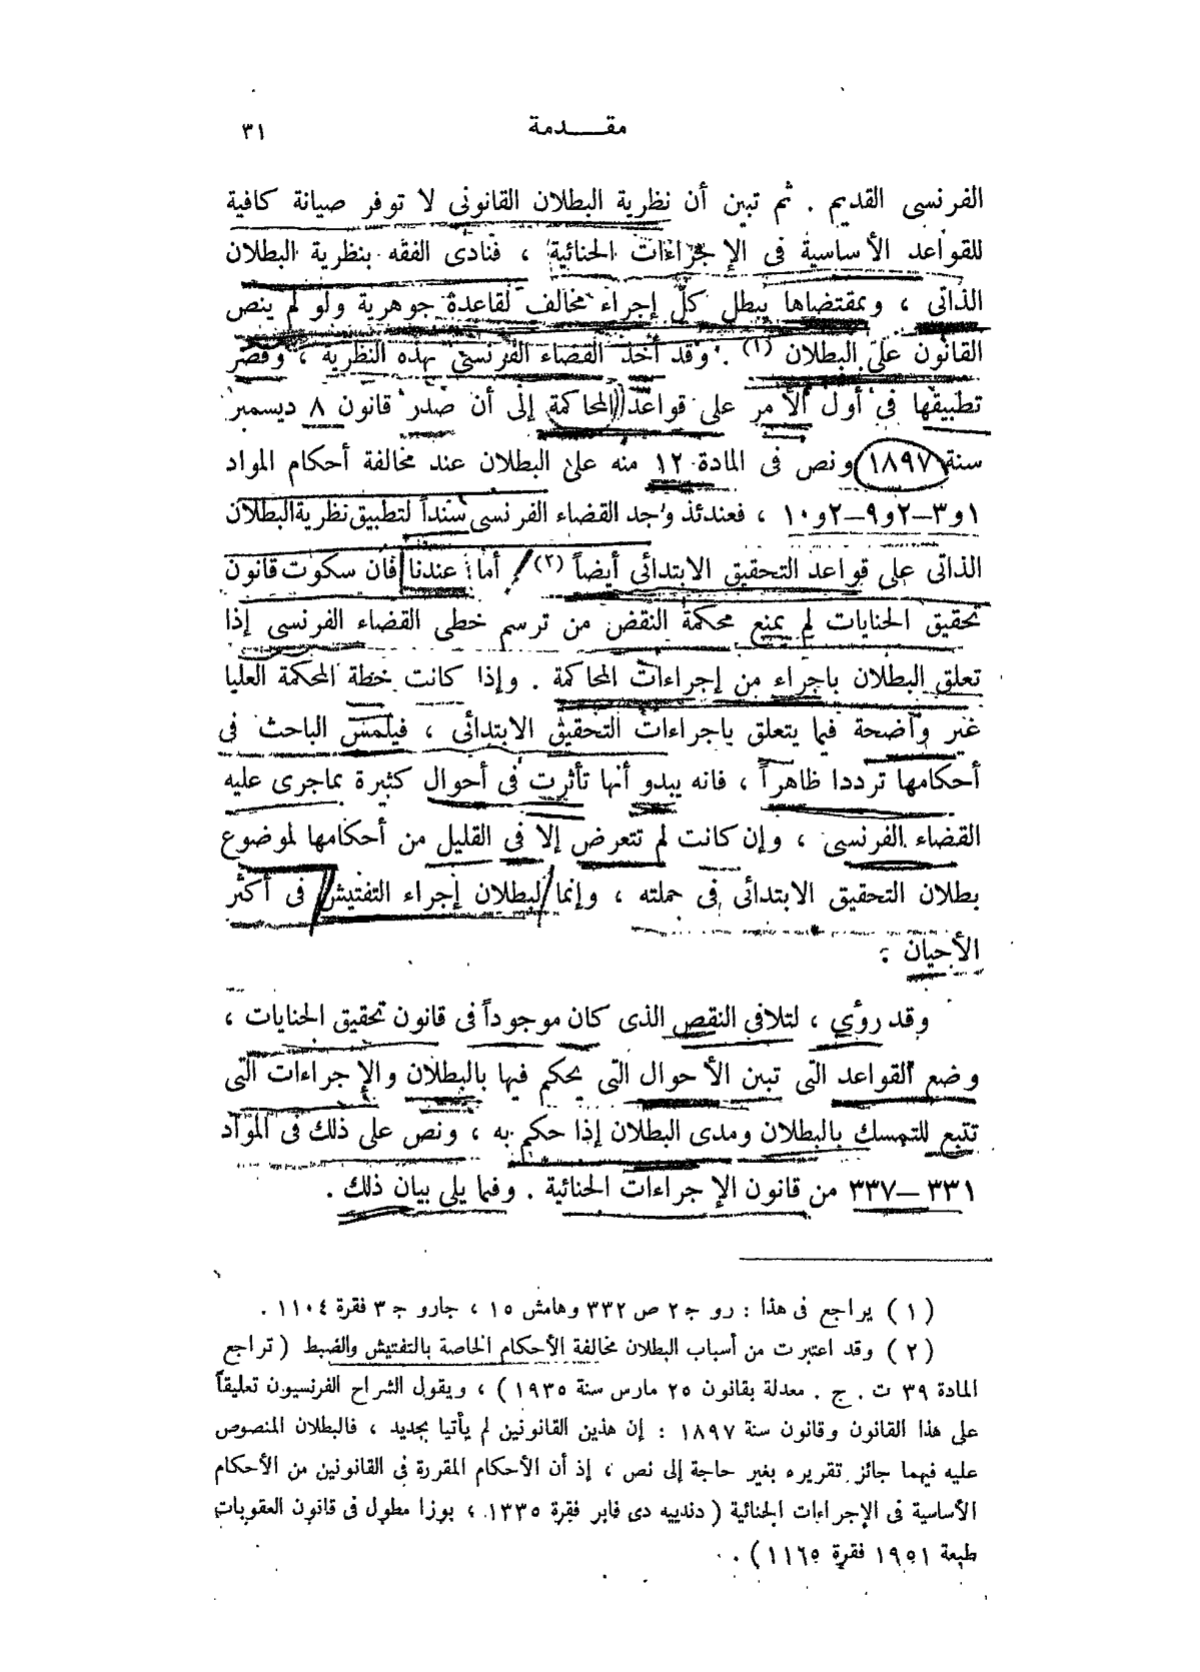 مقـــدمة
٣١
الفرنسى القديم . ثم تبين أن نظرية البطلان القانونى لا توفر صيانة كافية
للقواعد الأساسية فى الإجراءات الجنائية ، فنادى الفقه بنظرية البطلان
الذاتى ، وبمقتضاها يبطل كل إجراء مخالف لقاعدة جوهرية ولو لم ينص
القانون على البطلان (١) . وقد أخذ القضاء الفرنسى بهذه النظرية ، وقصر
تطبيقها فى أول الأمر على قواعد المحاكمة إلى أن صدر قانون ٨ ديسمبر
سنة ١٨٩٧ ونص فى المادة ١٢ منه على البطلان عند مخالفة أحكام المواد
١و٣–٢و٩–٢و١٠ ، فعندئذ وجد القضاء الفرنسى سنداً لتطبيق نظرية البطلان
الذاتى على قواعد التحقيق الابتدائى أيضاً (٢) ، أما عندنا فان سكوت قانون
تحقيق الجنايات لم يمنع محكمة النقض من ترسم خطى القضاء الفرنسى إذا
تعلق البطلان باجراء من إجراءات المحاكمة . وإذا كانت خطة المحكمة العليا
غير واضحة فيما يتعلق باجراءات التحقيق الابتدائى ، فيلمس الباحث فى
أحكامها ترددا ظاهراً ، فانه يبدو أنها تأثرت فى أحوال كثيرة بماجرى عليه
القضاء الفرنسى ، وإن كانت لم تتعرض إلا فى القليل من أحكامها لموضوع
بطلان التحقيق الابتدائى فى جملته ، وإنما لبطلان إجراء التفتيش فى أكثر
الأحيان .
وقد رؤى ، لتلافى النقص الذى كان موجوداً فى قانون تحقيق الجنايات ،
وضع القواعد التى تبين الأحوال التى يحكم فيها بالبطلان والإجراءات التى
تتبع للتمسك بالبطلان ومدى البطلان إذا حكم به ، ونص على ذلك فى المواد
٣٣١–٣٣٧ من قانون الإجراءات الجنائية . وفيما يلى بيان ذلك .
(١) يراجع فى هذا : رو ج٢ ص ٣٣٢ وهامش ١٥ ، جارو ج٣ فقرة ١١٠٤ .
(٢) وقد اعتبرت من أسباب البطلان مخالفة الأحكام الخاصة بالتفتيش والضبط (تراجع
المادة ٣٩ ت . ج . معدلة بقانون ٢٥ مارس سنة ١٩٣٥) ، ويقول الشراح الفرنسيون تعليقاً
على هذا القانون وقانون سنة ١٨٩٧ : إن هذين القانونين لم يأتيا بجديد ، فالبطلان المنصوص
عليه فيهما جائز تقريره بغير حاجة إلى نص ، إذ أن الأحكام المقررة فى القانونين من الأحكام
الأساسية فى الإجراءات الجنائية (دندييه دى فابر فقرة ١٣٣٥ ، بوزا مطول فى قانون العقوبات
طبعة ١٩٥١ فقرة ١١٦٥) .